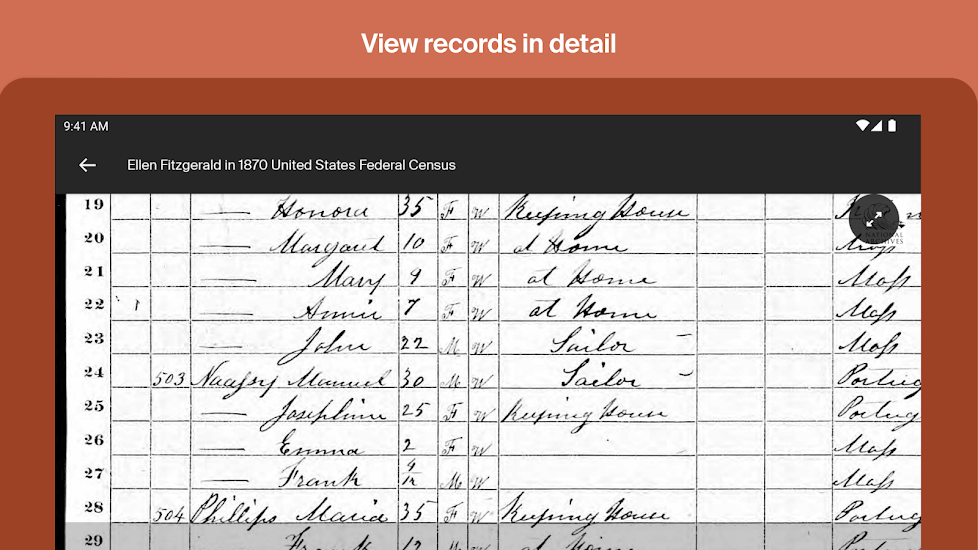 View records in detail
9:41 AM
Ellen Fitzgerald in 1870 United States Federal Census
19 — Honora 35 F W Keeping House
NATIONAL ARCHIVES
20 — Margaret 10 F W at Home Mass
21 — Mary 9 F W at Home Mass
22 — Annie 7 F W at Home Mass
23 — John 22 M W Sailor Mass
24 503 Manuel 30 M W Sailor Portug
25 — Josephine 25 F W Keeping House Portug
26 — Emma 2 F W Mass
27 — Frank 9/12 M W Mass
28 504 Phillips Maria 35 F W Keeping House Portug
29 Frank 12 at Home